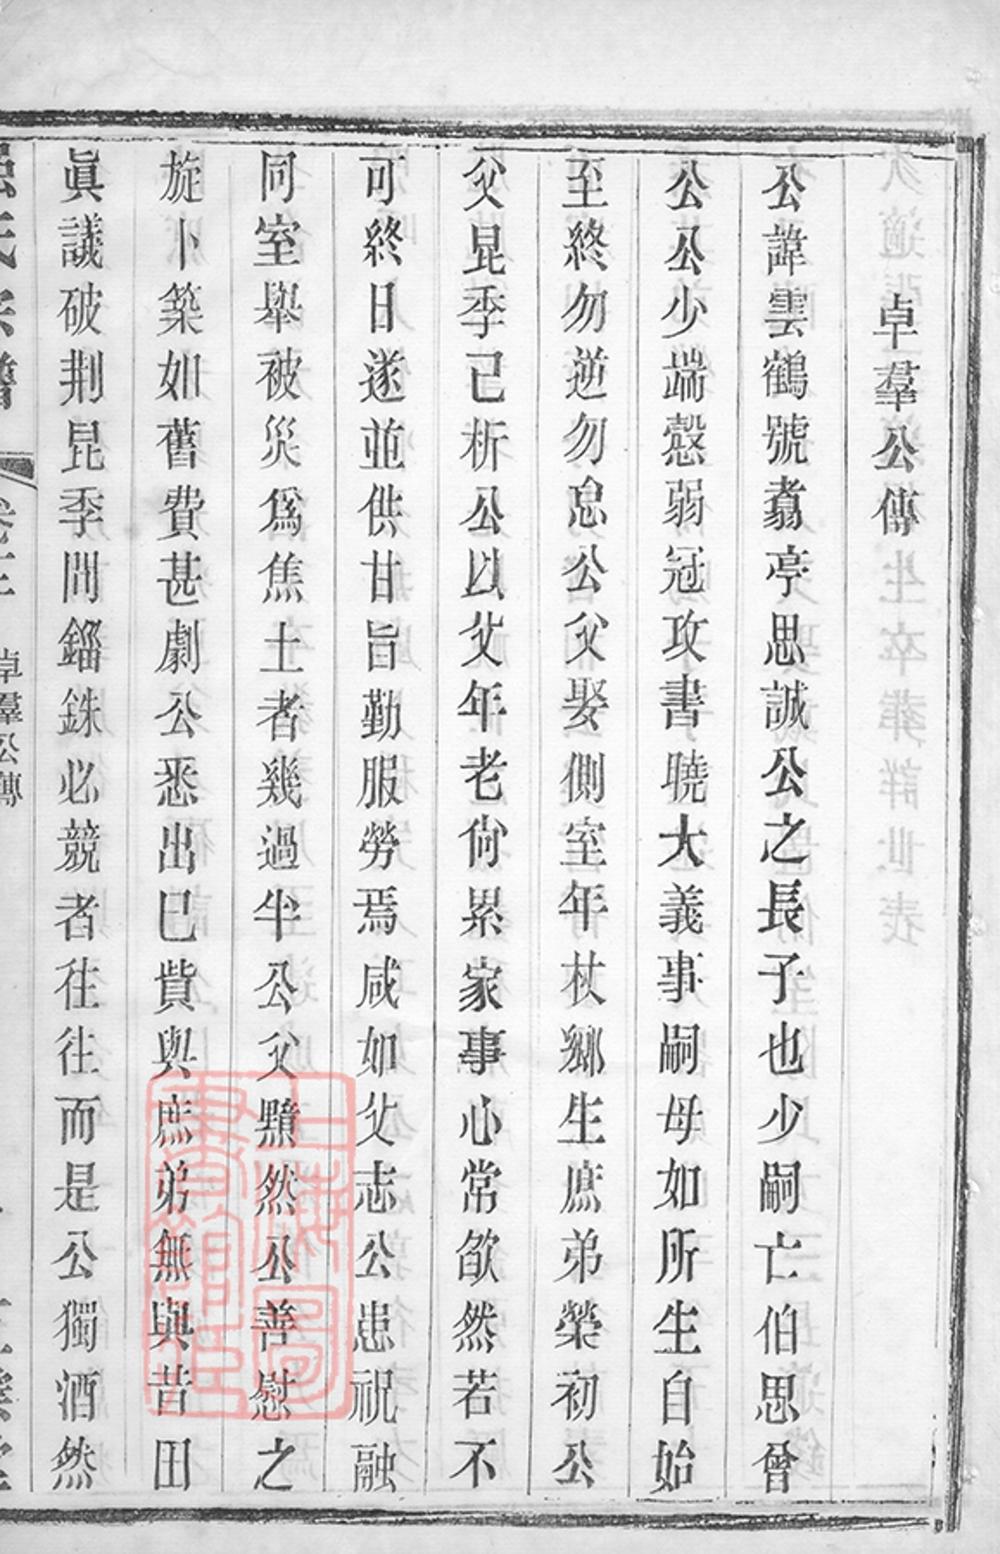 卓羣公傳
公諱雲鶴號翥亭思誠公之長子也少嗣亡伯思曾
公公少端慤弱冠攻書曉大義事嗣母如所生自始
至終勿逆勿怠公父娶側室年杖鄉生庶弟榮初公
父昆季已析公以父年老尙累家事心常欿然若不
可終日遂並供甘旨勤服勞焉咸如父志公患祝融
同室舉被災爲焦土者幾過半公父黯然公善慰之
旋卜築如舊費甚劇公悉出已貲與庶弟無與昔田
眞議破荆昆季間錙銖必競者往往而是公獨洒然
卓羣公傳
上海圖
書館臧